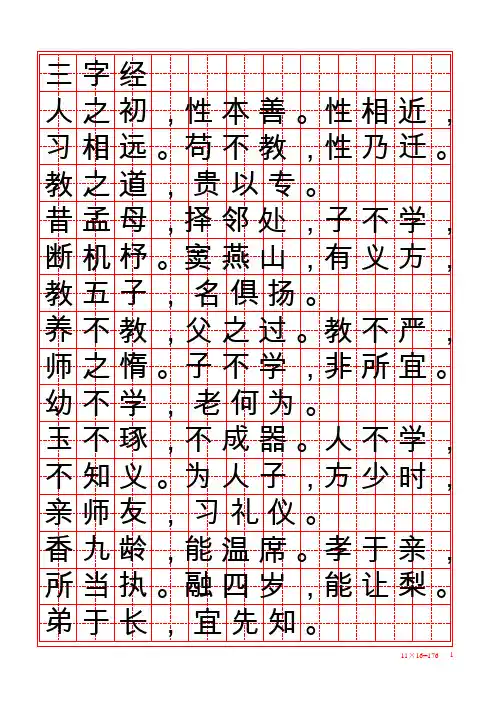 三字经
人之初,性本善。性相近,
习相远。苟不教,性乃迁。
教之道,贵以专。
昔孟母,择邻处,子不学,
断机杼。窦燕山,有义方,
教五子,名俱扬。
养不教,父之过。教不严,
师之惰。子不学,非所宜。
幼不学,老何为。
玉不琢,不成器。人不学,
不知义。为人子,方少时,
亲师友,习礼仪。
香九龄,能温席。孝于亲,
所当执。融四岁,能让梨。
弟于长,宜先知。
11×16=176 1